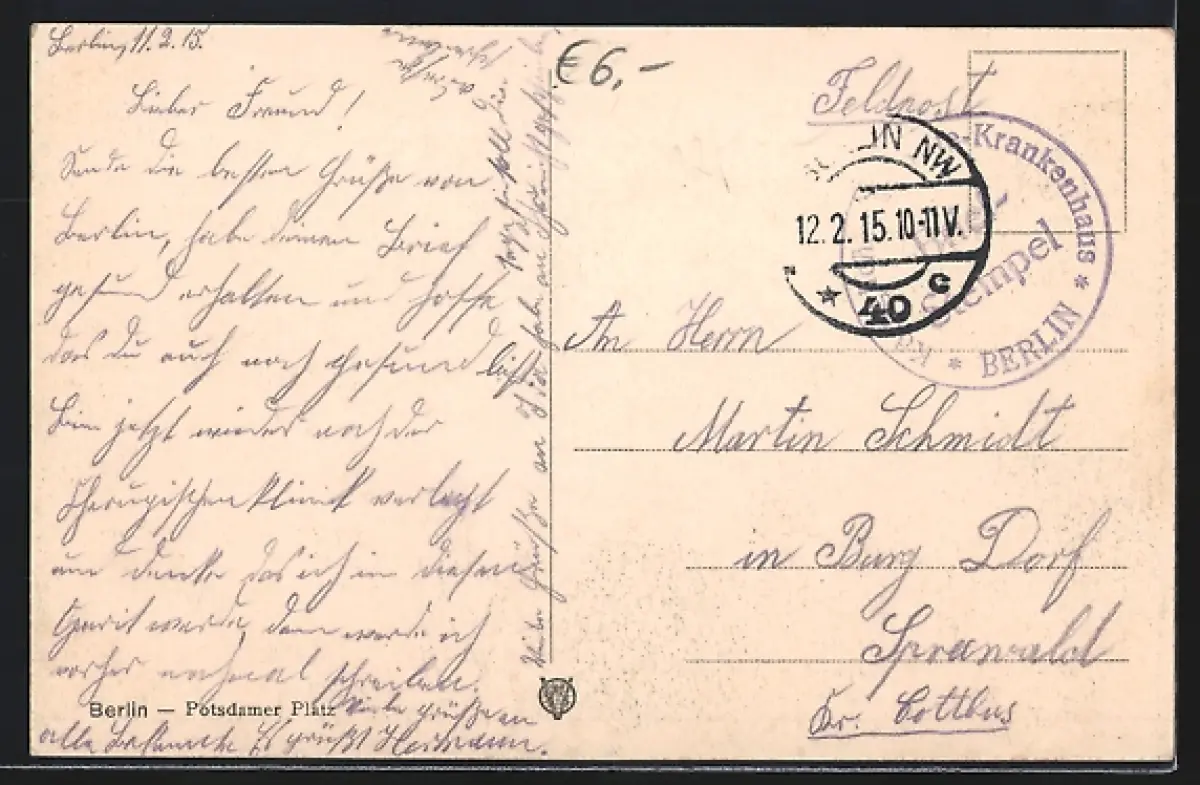 Berlin, 11.2.15.
Lieber Freund!
Sende die besten Grüße von
Berlin, habe deinen Brief
gesund erhalten und hoffe
das Du auch noch gesund bist
Bin jetzt wieder nach der
klinick verlegt
und denke das ich in diesen
werde, dann werde ich
vorher nochmal schreiben.
Viele Grüße an
alle Bekannte Es grüßt Hermann.
Viele Grüße an
schreiben
€6,-
Feldpost
BERLIN NW
12.2.15.10-11V.
* 40 G
-Krankenhaus * BERLIN *
Brief-
Stempel
An Herrn
Martin Schmidt
in Burg Dorf
Spreewald
Kr. Cottbus
Berlin — Potsdamer Platz